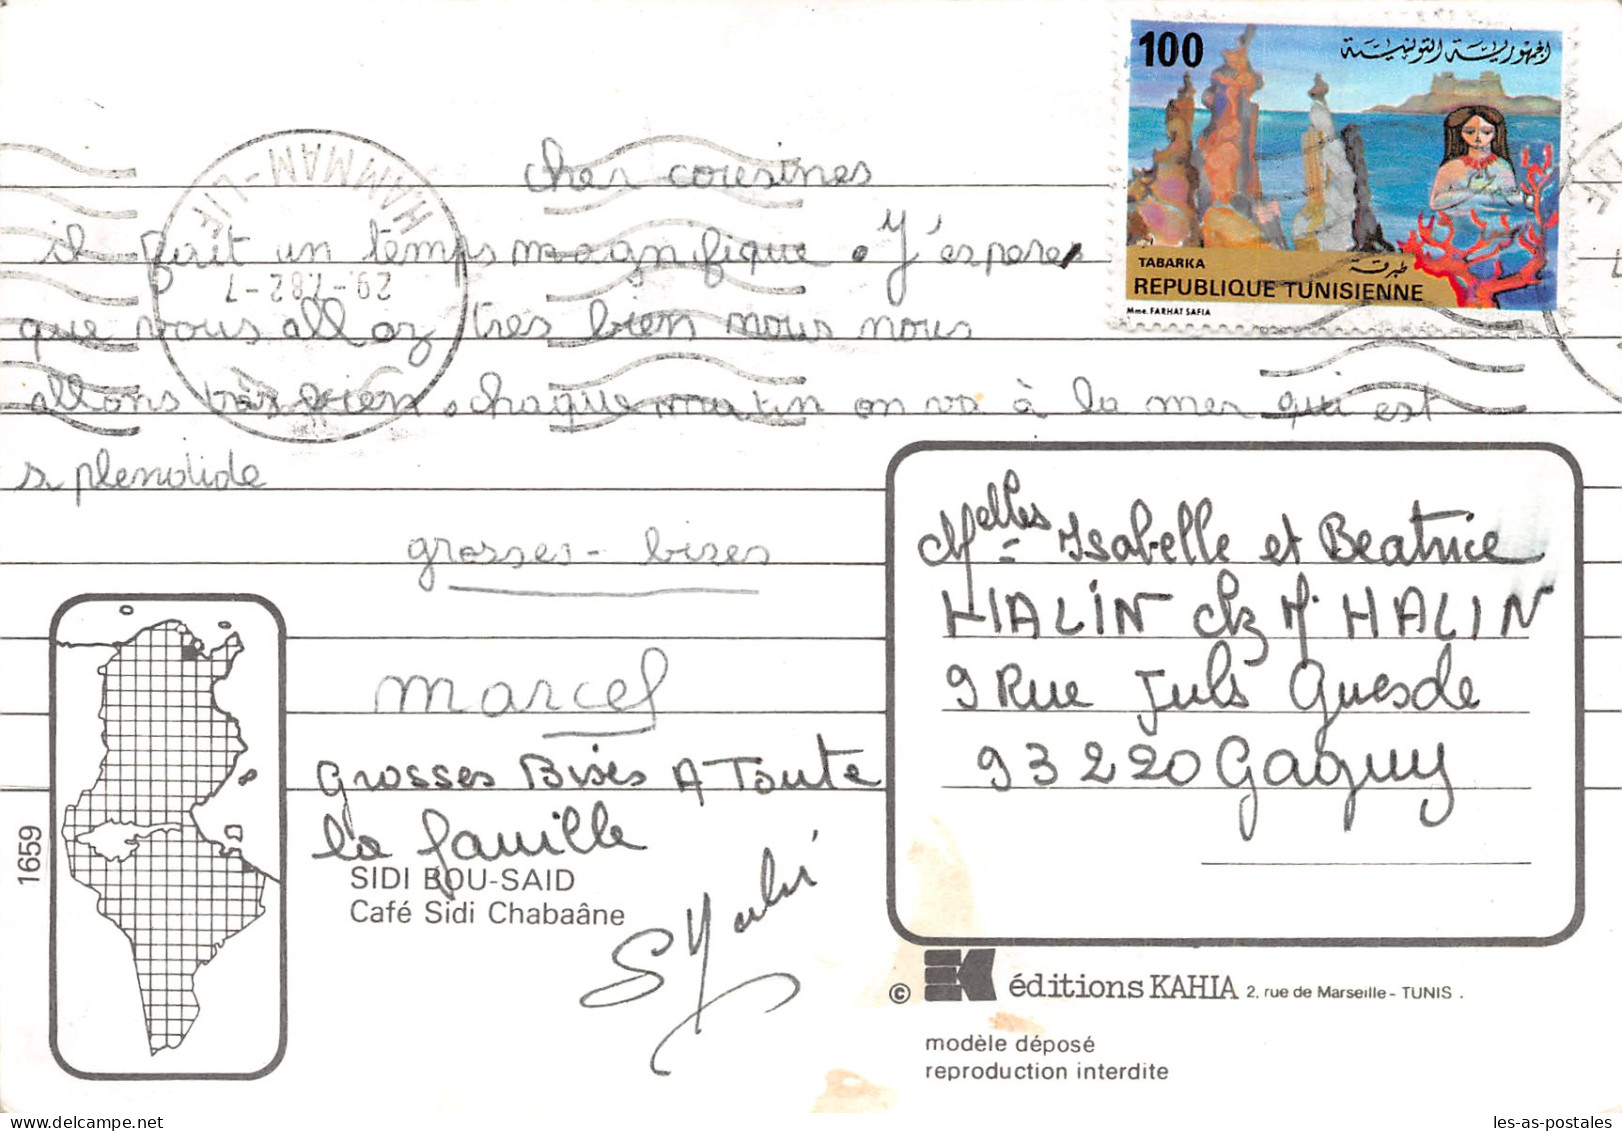 100
الجمهورية التونسية
TABARKA
طبرقة
REPUBLIQUE TUNISIENNE
Mme. FARHAT SAFIA
HAMMAM-LIF
29-7.82-7
cher cousines
il fait un temps magnifique. J'espere
que vous allez tres bien nous nous
allons très bien. chaque matin on va à la mer qui est
splendide
grosses-bises
marcel
Grosses Bises A Toute
la famille
SIDI BOU-SAID
Café Sidi Chabaâne
1659
Melles Isabelle et Beatrice
HALIN chz M. HALIN
9 Rue Juls Guesde
93220 Gagny
© EK éditions KAHIA 2, rue de Marseille - TUNIS .
modèle déposé
reproduction interdite
les-as-postales